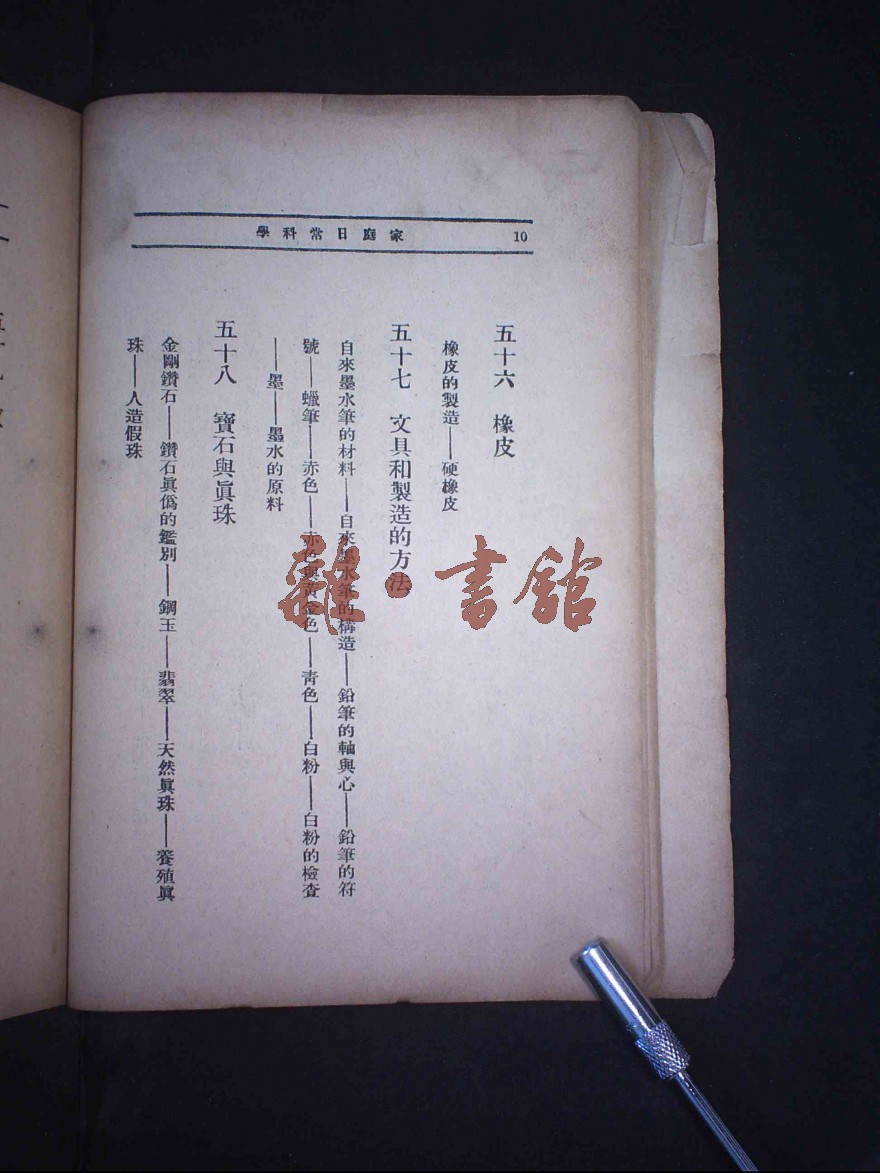 家庭日常科學
10
五十六　橡皮
橡皮的製造——硬橡皮
五十七　文具和製造的方法
自來墨水筆的材料——自來墨水筆的構造——鉛筆的軸與心——鉛筆的符
號——蠟筆——赤色——赤色與黃金色——青色——白粉——白粉的檢查
——墨——墨水的原料
五十八　寶石與眞珠
金剛鑽石——鑽石眞僞的鑑別——鋼玉——翡翠——天然眞珠——養殖眞
珠——人造假珠
雜·書館